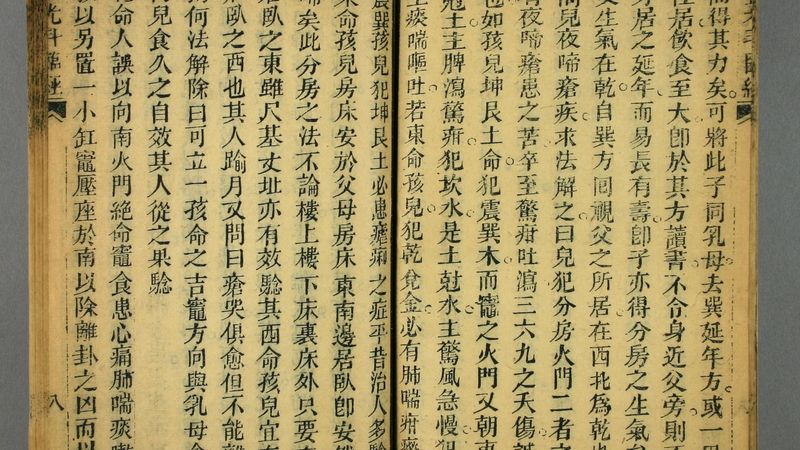 而得其力矣可將此子同乳母去巽延年方或一里
在居飲食至大卽於其方讀書不令身近父旁則
房居之延年而易長有壽卽子亦得分房之生氣
女生氣在乾自巽方囘覲父之所居在西北為乾也
問兒夜啼瘡疾求法解之曰兒犯分房火門二者之
青夜啼瘡患之苦卒至驚疳吐瀉三六九之夭傷誠
也如孩兒坤艮土命犯震巽木而竈之火門又朝東
尅土主脾瀉驚疳犯坎水是土尅水主驚風急慢犯
主痰喘嘔吐若東命孩兒犯乾兌金必有肺喘疳
震巽孩兒犯坤艮土必患瘡痢之症平昔治人多驗
東命孩兒房床安於父母房床東南邊居臥卽安
啼矣此分房之法不論樓上樓下床裏床外只要
臥之東雖尺基丈址亦有效驗其西命孩兒宜
臥之西也其人踰月又問曰瘡哭俱愈但不能
何法解除曰可立一孩命之吉竈方向與乳母
兒食久之自效其人從之果驗
命人誤以向南火門絕命竈食患心痛肺喘痰嗽
以另置一小缸竈壓座於南以除離卦之凶而以
八